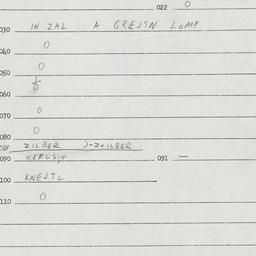 022 0
030 IN ZAL A GREJSN LOMP
040 0
050 0
060
070 0
080 0
081 ZILBER )-Z+ILBER
090 KEROSIN 091 —
100 KNEJTL
110 0